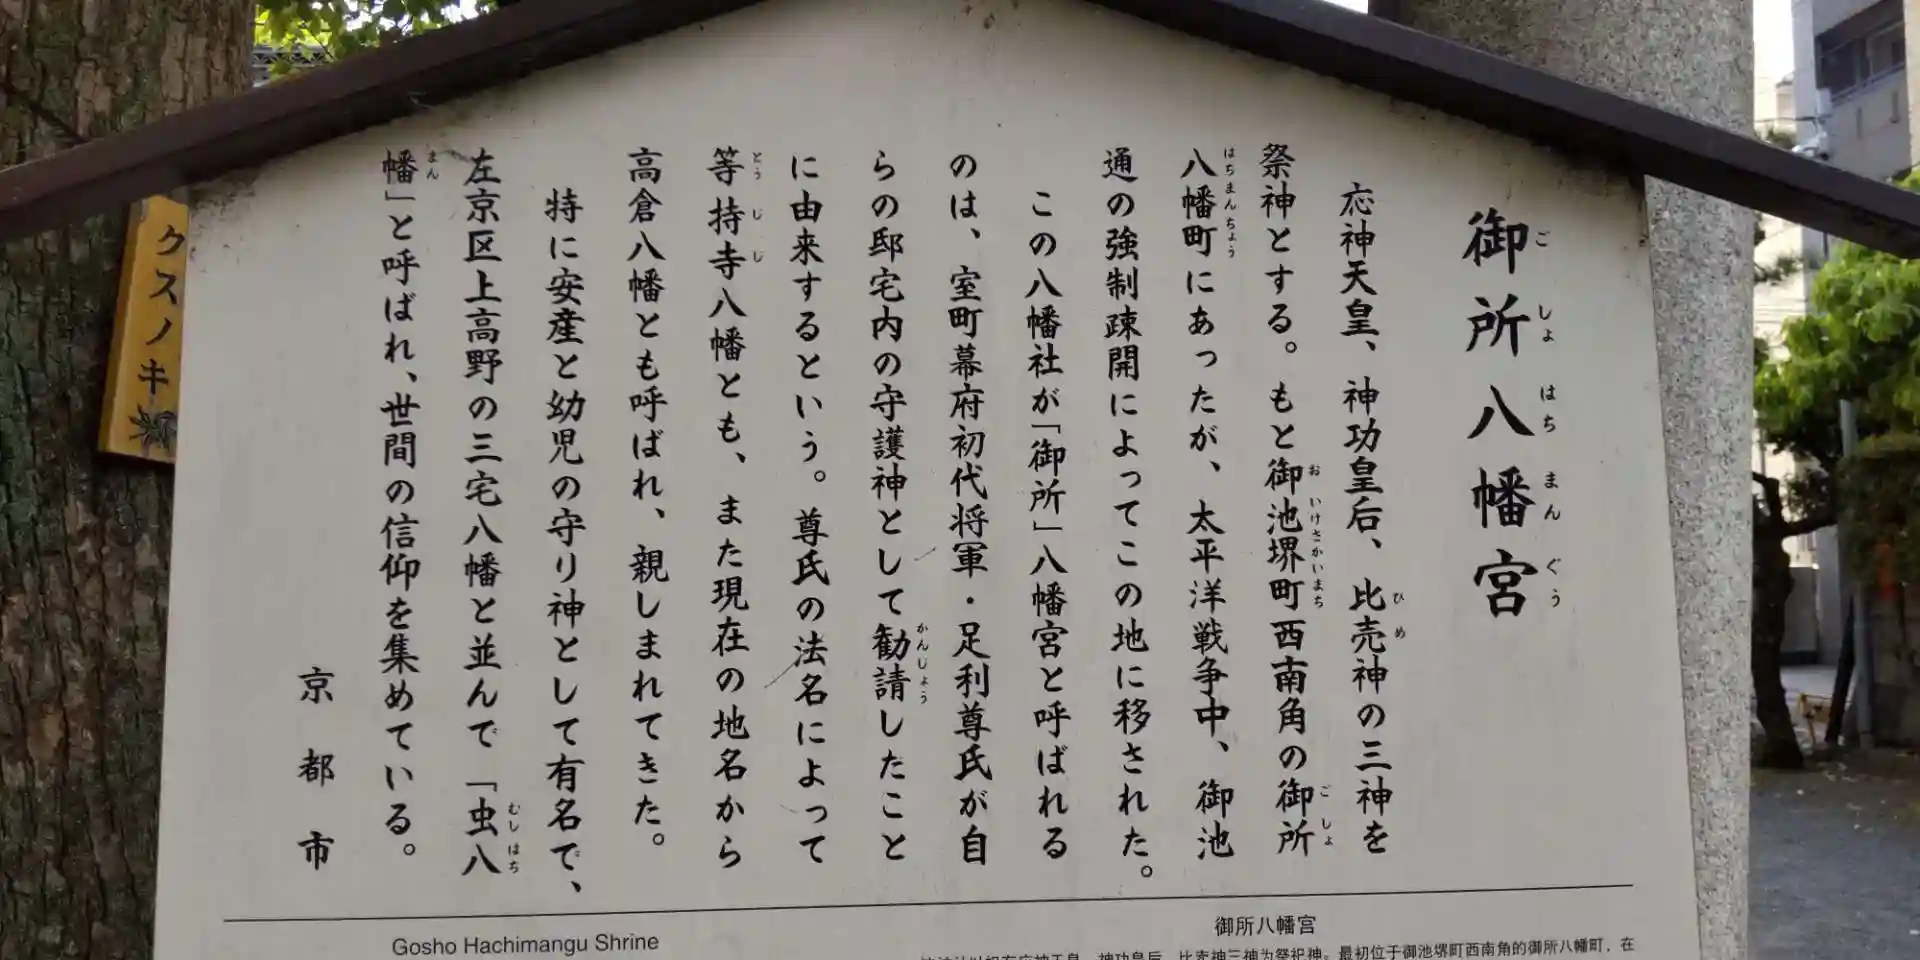 御所八幡宮
ごしょはちまんぐう
応神天皇、神功皇后、比売神の三神を
ひめ
祭神とする。もと御池堺町西南角の御所
おいけさかいまち
ごしょ
八幡町にあったが、太平洋戦争中、御池
はちまんちょう
通の強制疎開によってこの地に移された。
この八幡社が「御所」八幡宮と呼ばれる
のは、室町幕府初代将軍・足利尊氏が自
らの邸宅内の守護神として勧請したこと
かんじょう
に由来するという。尊氏の法名によって
等持寺八幡とも、また現在の地名から
とうじじ
高倉八幡とも呼ばれ、親しまれてきた。
特に安産と幼児の守り神として有名で、
左京区上高野の三宅八幡と並んで「虫八
むしはち
幡」と呼ばれ、世間の信仰を集めている。
まん
京都市
クスノキ
Gosho Hachimangu Shrine
御所八幡宮
最初位于御池堺町西南角的御所八幡町，在